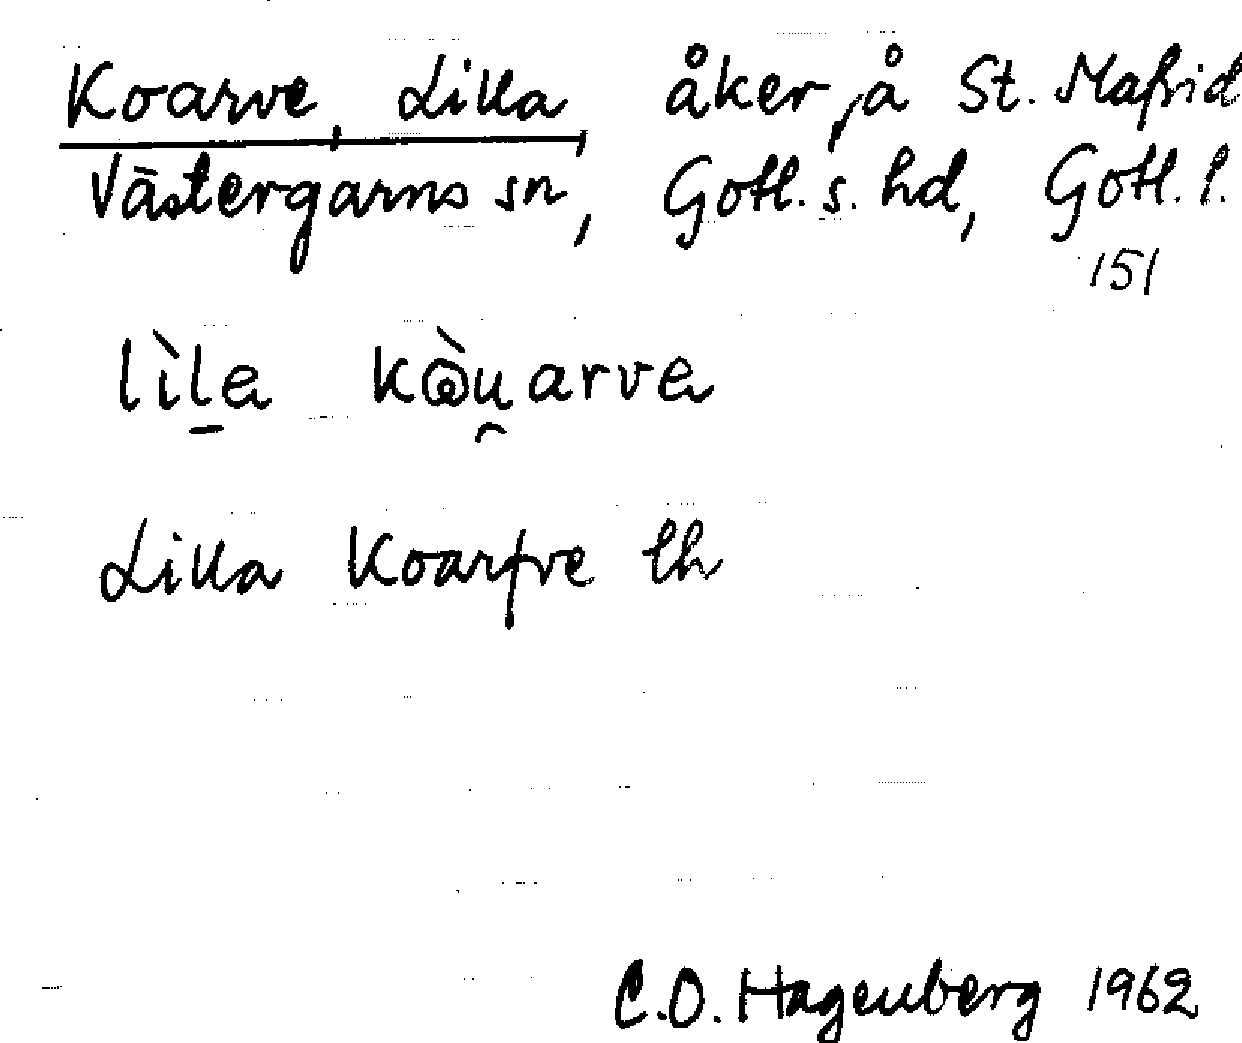 Koarve, Lilla, åker, å St. Mafrid
Västergarns sn, Gotl. s. hd, Gotl. l.
151
lìl̠a kòu̯arva
Lilla Koarfve lh
C.O. Hagenberg 1962